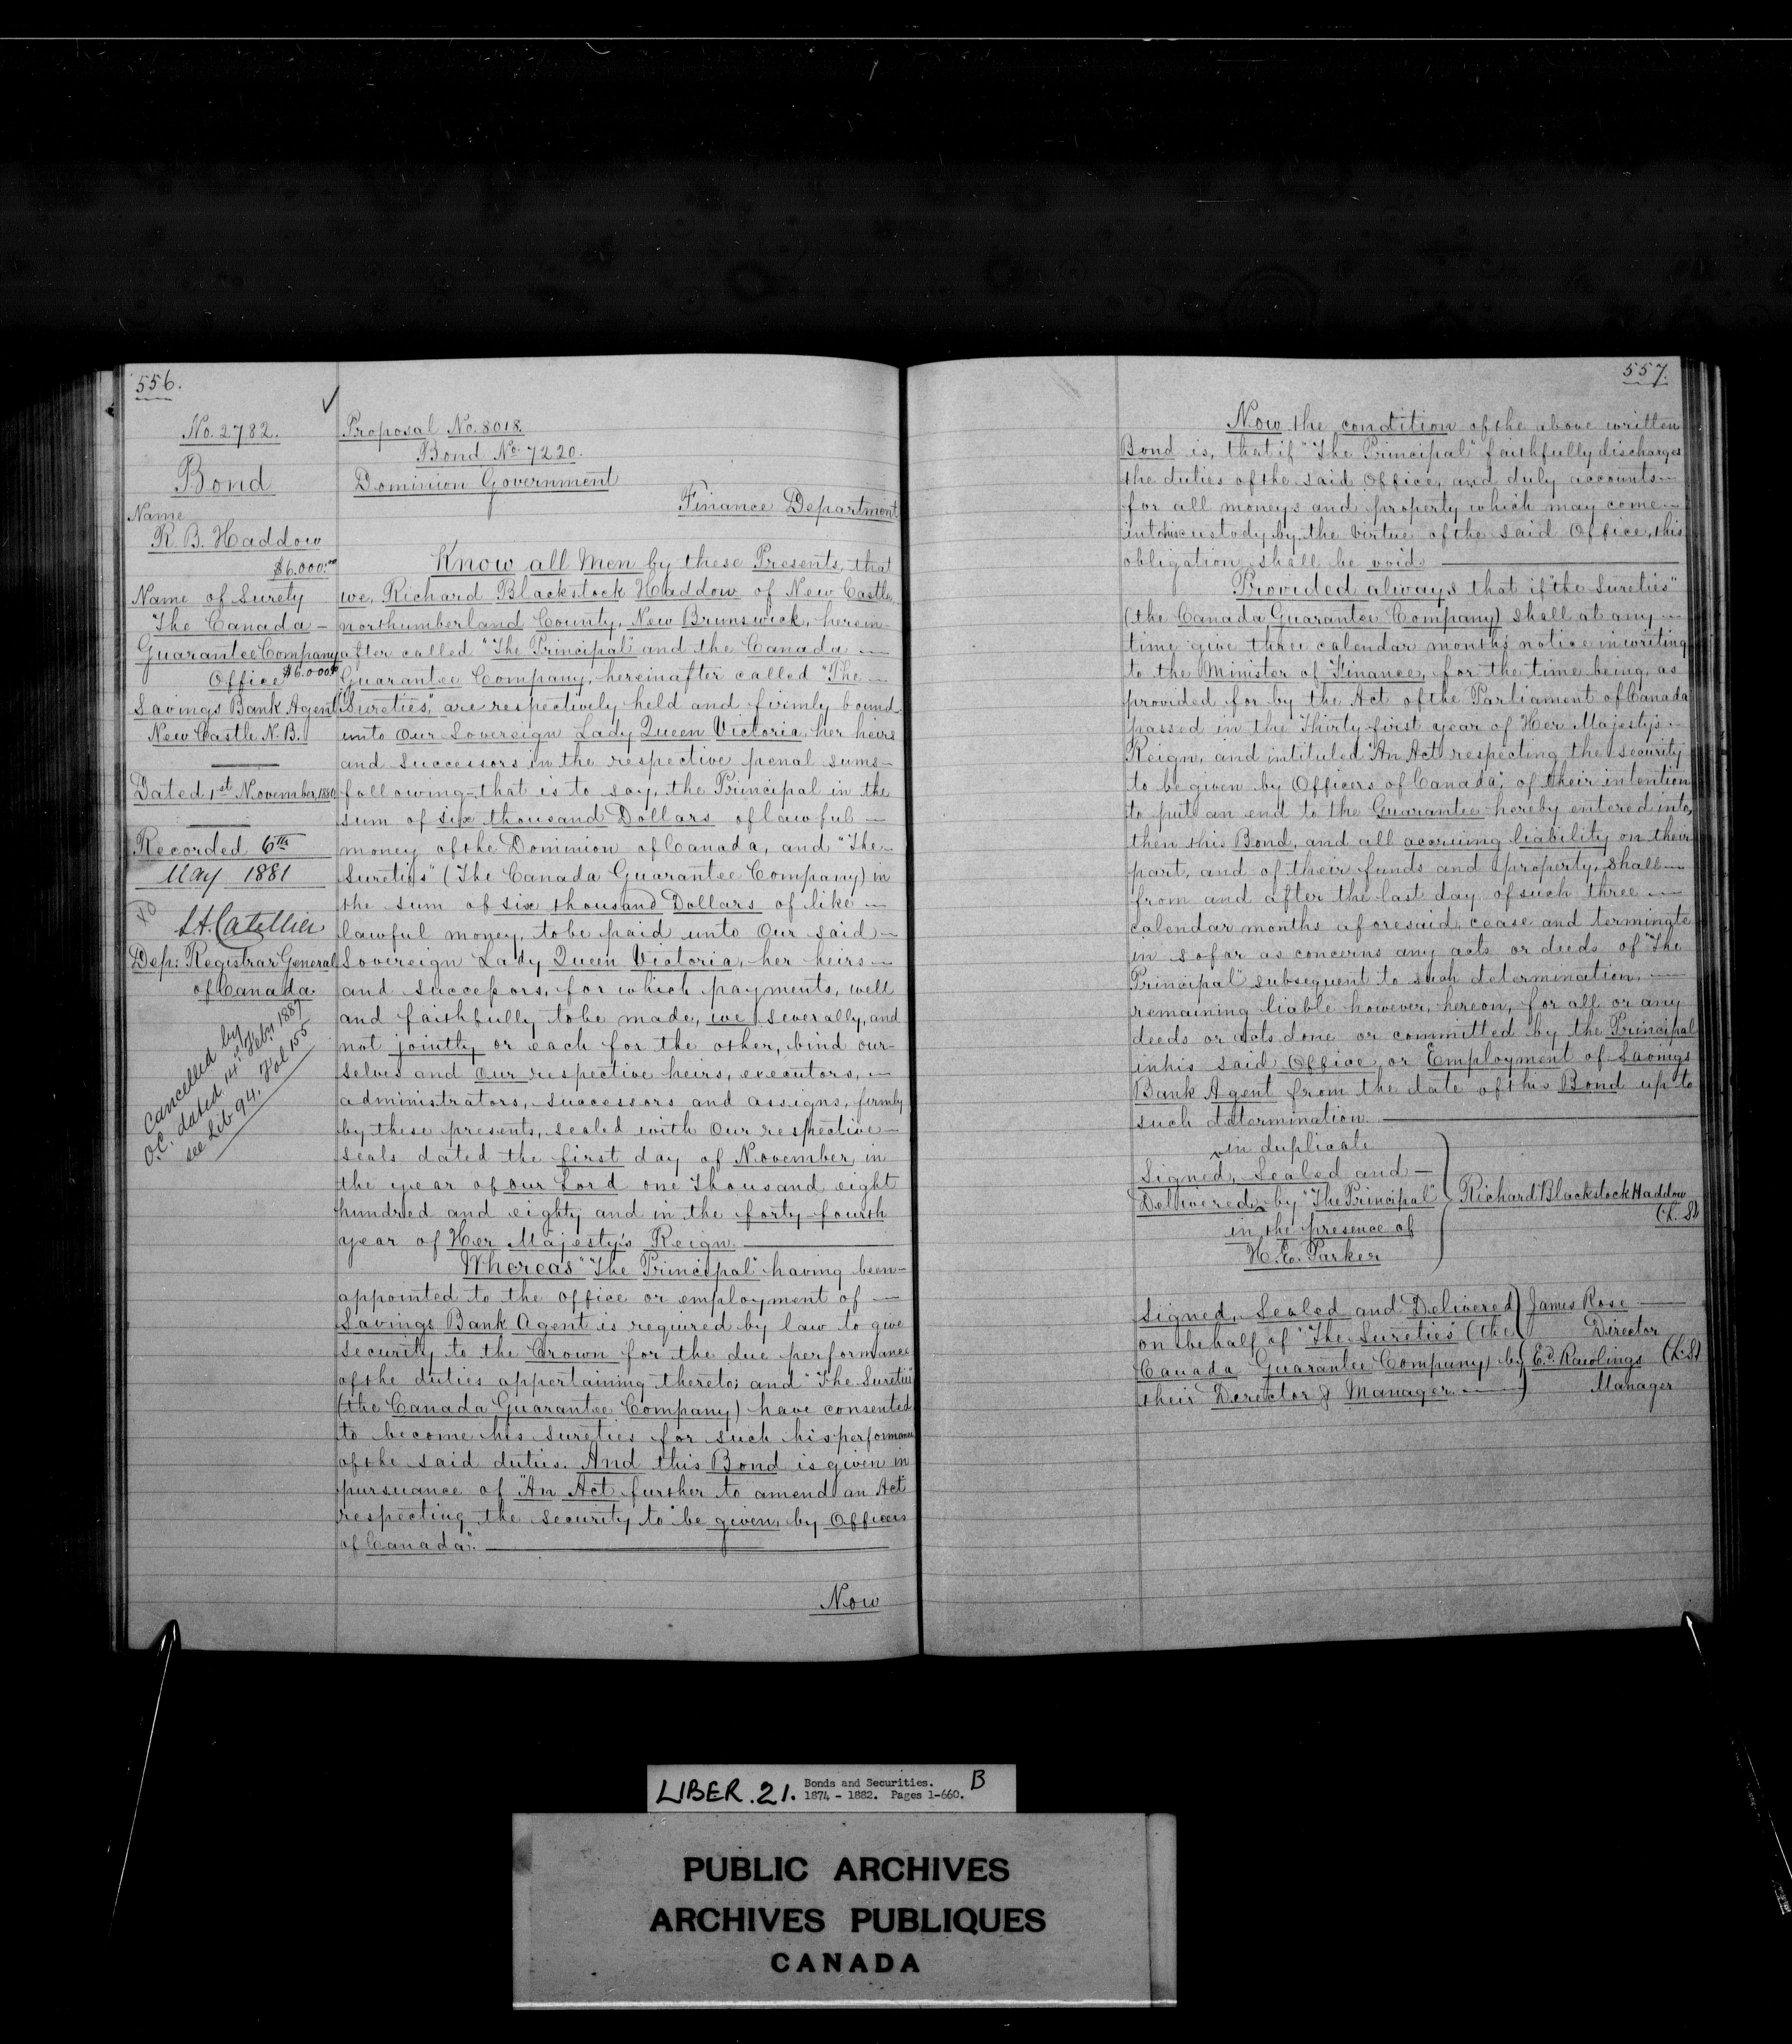 556.
No. 2782.
Bond
Name
R B. Haddow
$6.000.00
Name of Surety
The Canada -
Guarantee Company
$6.000.00
Office
Savings Bank Agent
New Castle N. B.
Dated 1st November, 1880
Recorded 6th
May 1881
L A. Catellier
Dep: Registrar General
of Canada.
Cancelled by
O.C. dated 14th Feby 1887
see Lib 94. Fol 155
Proposal No. 8018.
Bond No. 7220.
Dominion Government
Finance Department.
Know all Men by these Presents, that
we, Richard Blackstock Haddow of New Castle,
northumberland County, New Brunswick, herein-
after called "The Principal" and the Canada —
Guarantee Company, hereinafter called "The —
Sureties," are respectively held and firmly bound-
unto Our Sovereign Lady Queen Victoria, her heirs
and successors in the respective penal sums-
following-that is to say, the Principal in the
sum of six thousand Dollars of lawful —
money of the Dominion of Canada, and "The-
Sureties" (The Canada Guarantee Company) in
the sum of six thousand Dollars of like —
lawful money, to be paid unto Our said -
Sovereign Lady Queen Victoria, her heirs —
and successors, for which payments, well
and faithfully to be made, we severally, and
not jointly or each for the other, bind our-
selves and Our respective heirs, executors, —
administrators, successors and assigns, firmly
by these presents, sealed with Our respective -
seals dated the first day of November, in
the year of our Lord one Thousand eight
hundred and eighty and in the forty-fourth
year of Her Majesty's Reign. ———
Whereas "The Principal" having been-
appointed to the office or employment of —
Savings Bank Agent is required by law to give
security to the Crown for the due performance
of the duties appertaining thereto; and "The Sureties"
(the Canada Guarantee Company) have consented
to become his sureties for such his performance
of the said duties. And this Bond is given in
pursuance of "An Act further to amend an Act
respecting the security to be given, by Officers
of Canada". ———
Now
557.
Now the condition of the above written
Bond is, that if "The Principal" faithfully discharges
the duties of the said Office, and duly accounts —
for all moneys and property which may come —
into his custody by the virtue of the said Office, this
obligation shall be void. ———
Provided always that if "the Sureties"
(the Canada Guarantee Company) shall at any —
time give three calendar months notice in writing
to the Minister of Finance, for the time being, as
provided for by the Act of the Parliament of Canada
passed in the Thirty-first year of Her Majesty's —
Reign, and intituled "An Act respecting the security
to be given by Officers of Canada," of their intention
to put an end to the Guarantee hereby entered into,
then this Bond, and all accruing liability on their
part, and of their funds and property, shall —
from and after the last day of such three —
calendar months aforesaid, cease and terminate
in so far as concerns any acts or deeds of "The
Principal" subsequent to such determination, —
remaining liable however, hereon, for all or any
deeds or acts done or committed by the Principal
in his said Office or Employment of Savings
Bank Agent from the date of this Bond up to
such determination. ———
in duplicate
Signed, Sealed and —
Delivered ^ by "The Principal"
in the presence of
H. E. Parker
Richard Blackstock Haddow
(L. S)
Signed, Sealed and Delivered
on behalf of "The Sureties" (the
Canada Guarantee Company) by
their Director & Manager. —
James Rose —
Director
Ed. Rawlings (L. S)
Manager
LIBER. 21. Bonds and Securities. B
1874 - 1882. Pages 1-660.
PUBLIC ARCHIVES
ARCHIVES PUBLIQUES
CANADA